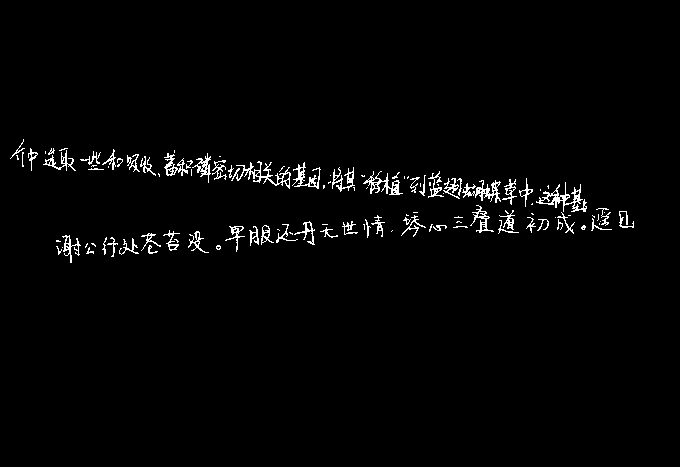 种选取一些和吸收、蓄积磷密切相关的基因,将其“移植”到蓝翅蝴蝶草中,这种基
谢公行处苍苔没。早服还丹无世情,琴心三叠道初成。遥见